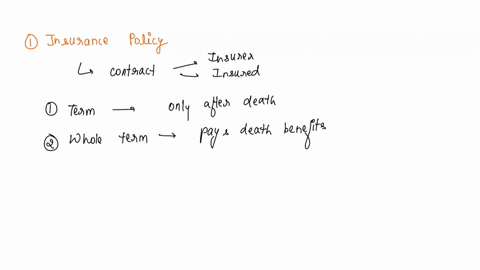 ① Insurance Policy
↳ contract Insurer
Insured
① Term → only after death
② Whole term → pays death benefits